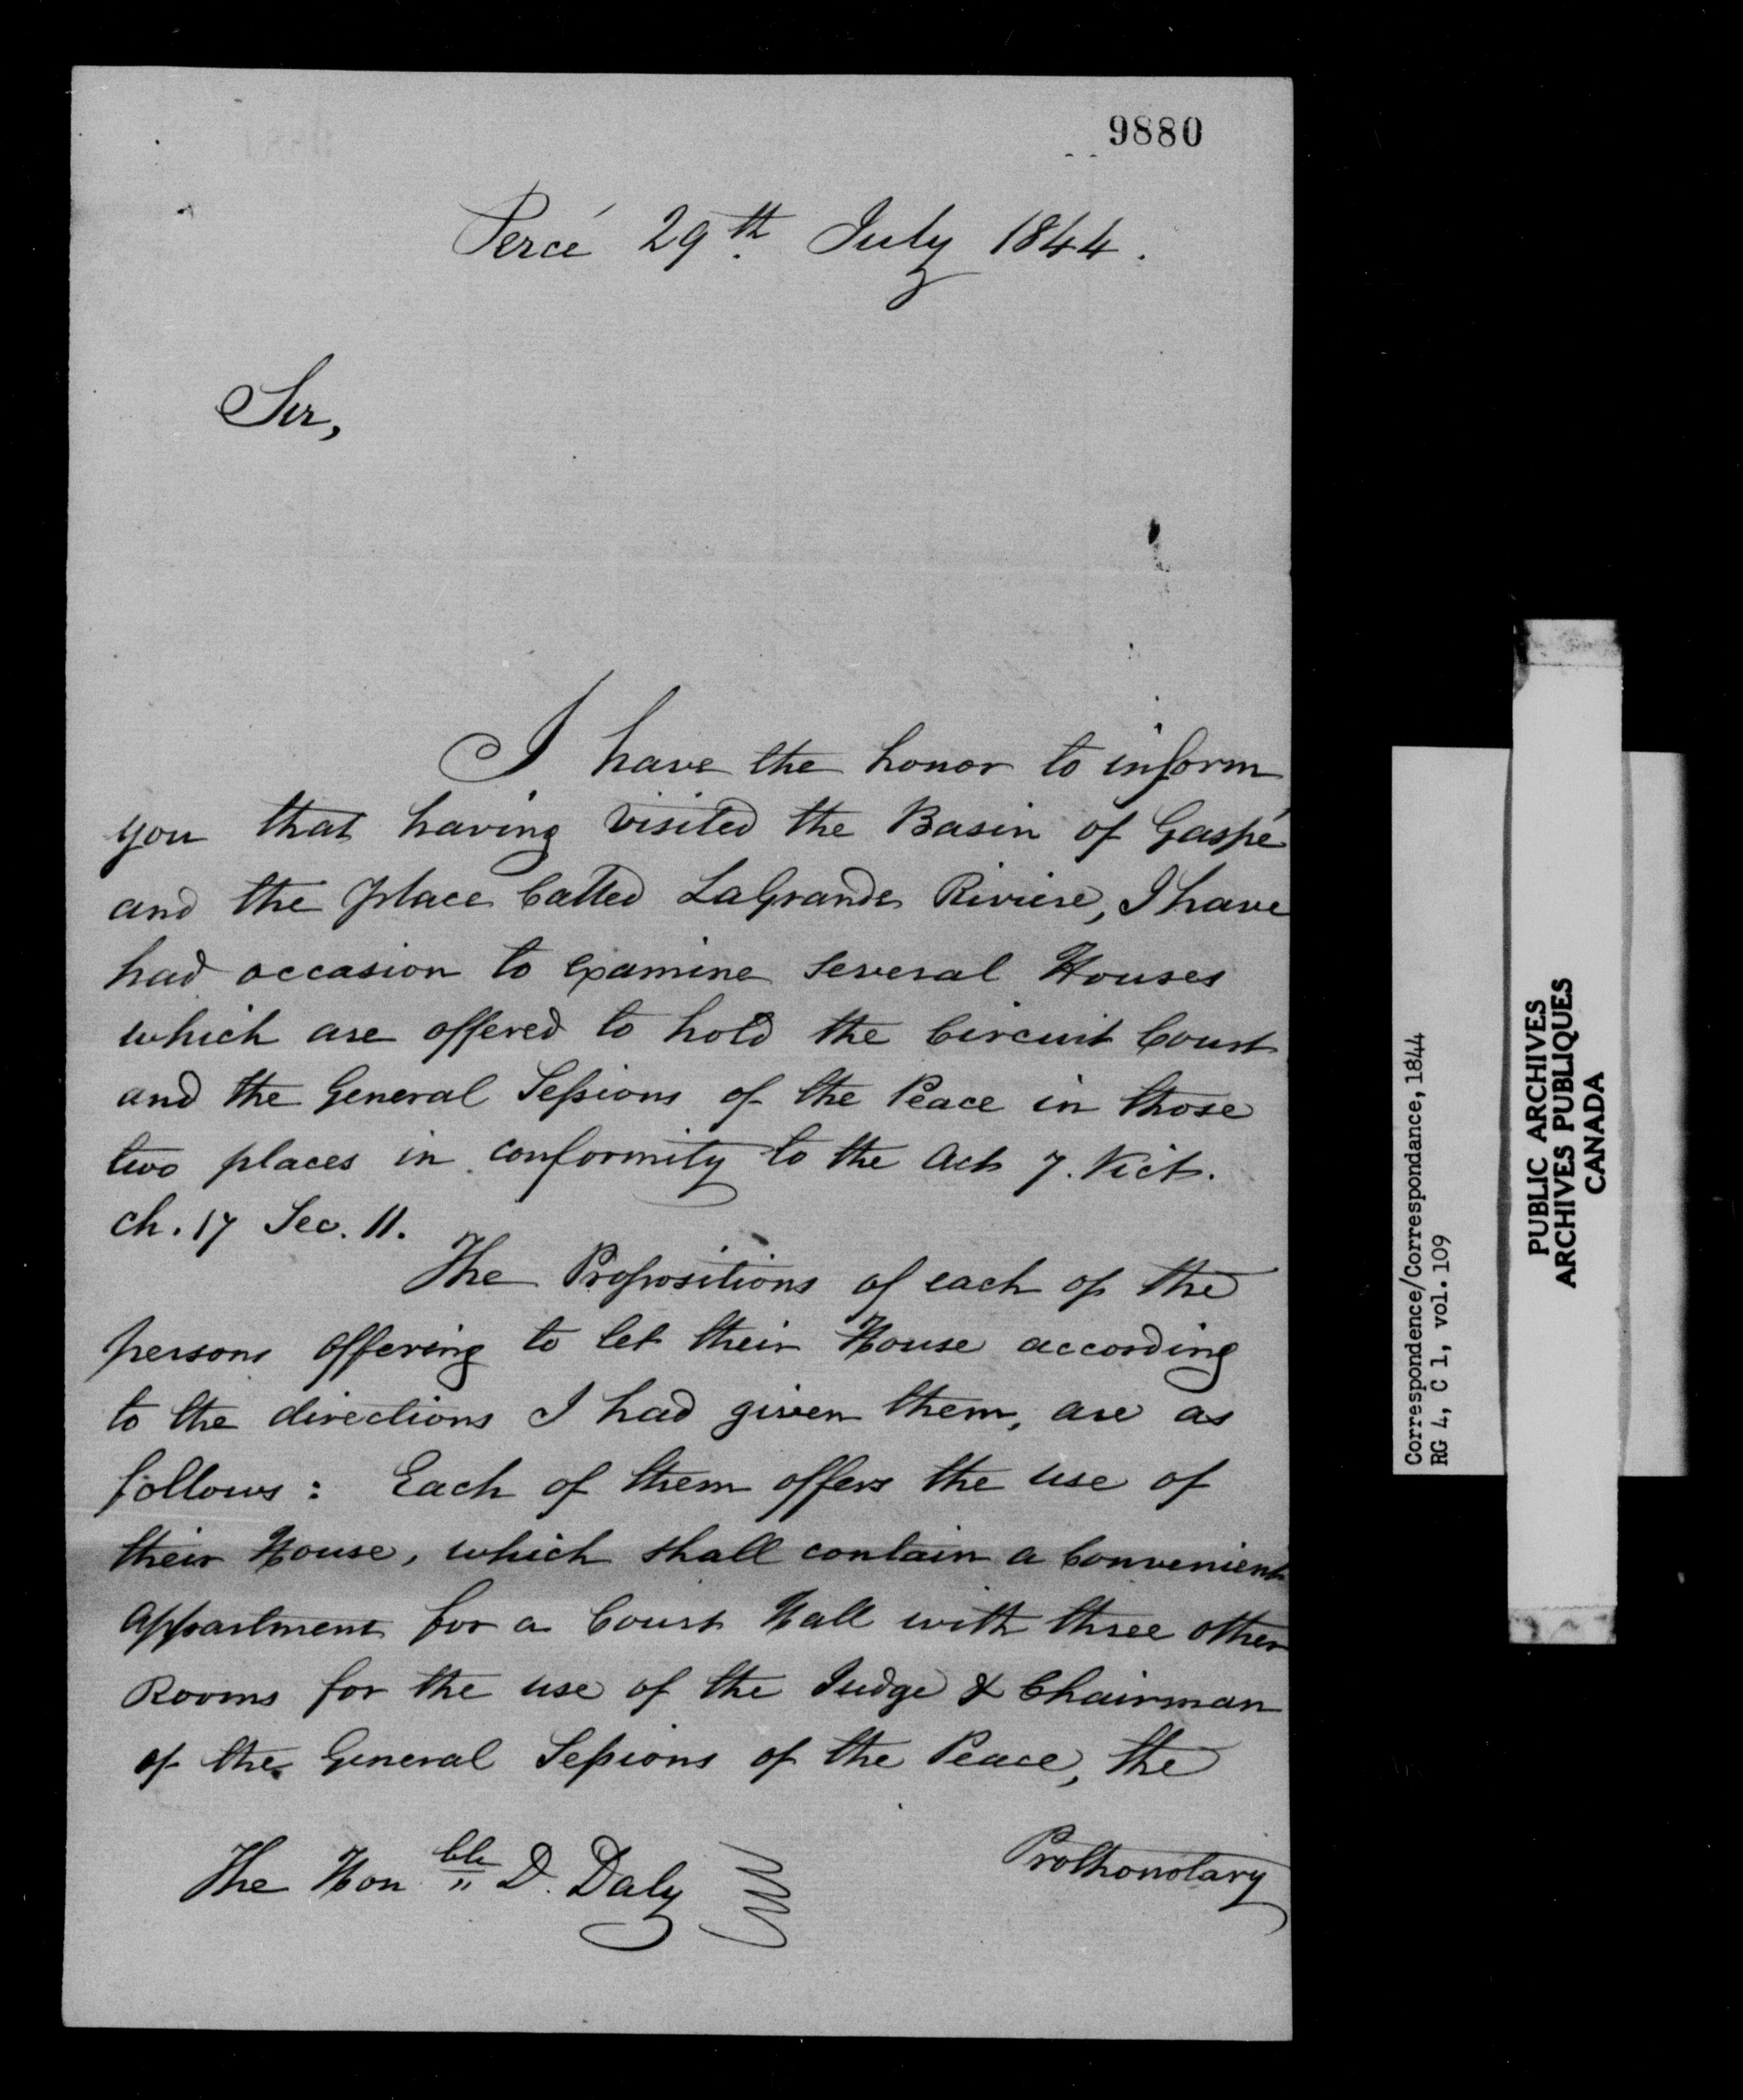 9880
Percé 29th. July 1844.
Sir,
I have the honor to inform
you that having visited the Basin of Gaspé
and the place Called LaGrande Riviere, I have
had occasion to examine several Houses
which are offered to hold the Circuit Court
and the General Sessions of the Peace in those
two places in conformity to the Act 7. Vict.
ch. 17 Sec. 11.
The Propositions of each of the
persons offering to let their House according
to the directions I had given them, are as
follows: Each of them offers the use of
their House, which shall contain a Convenient
Appartment for a Court Hall with three other
Rooms for the use of the Judge & Chairman
of the General Sessions of the Peace, the
Prothonotary
The Honble D. Daly
Correspondence/Correspondance, 1844
RG 4, C 1, vol. 109
PUBLIC ARCHIVES
ARCHIVES PUBLIQUES
CANADA